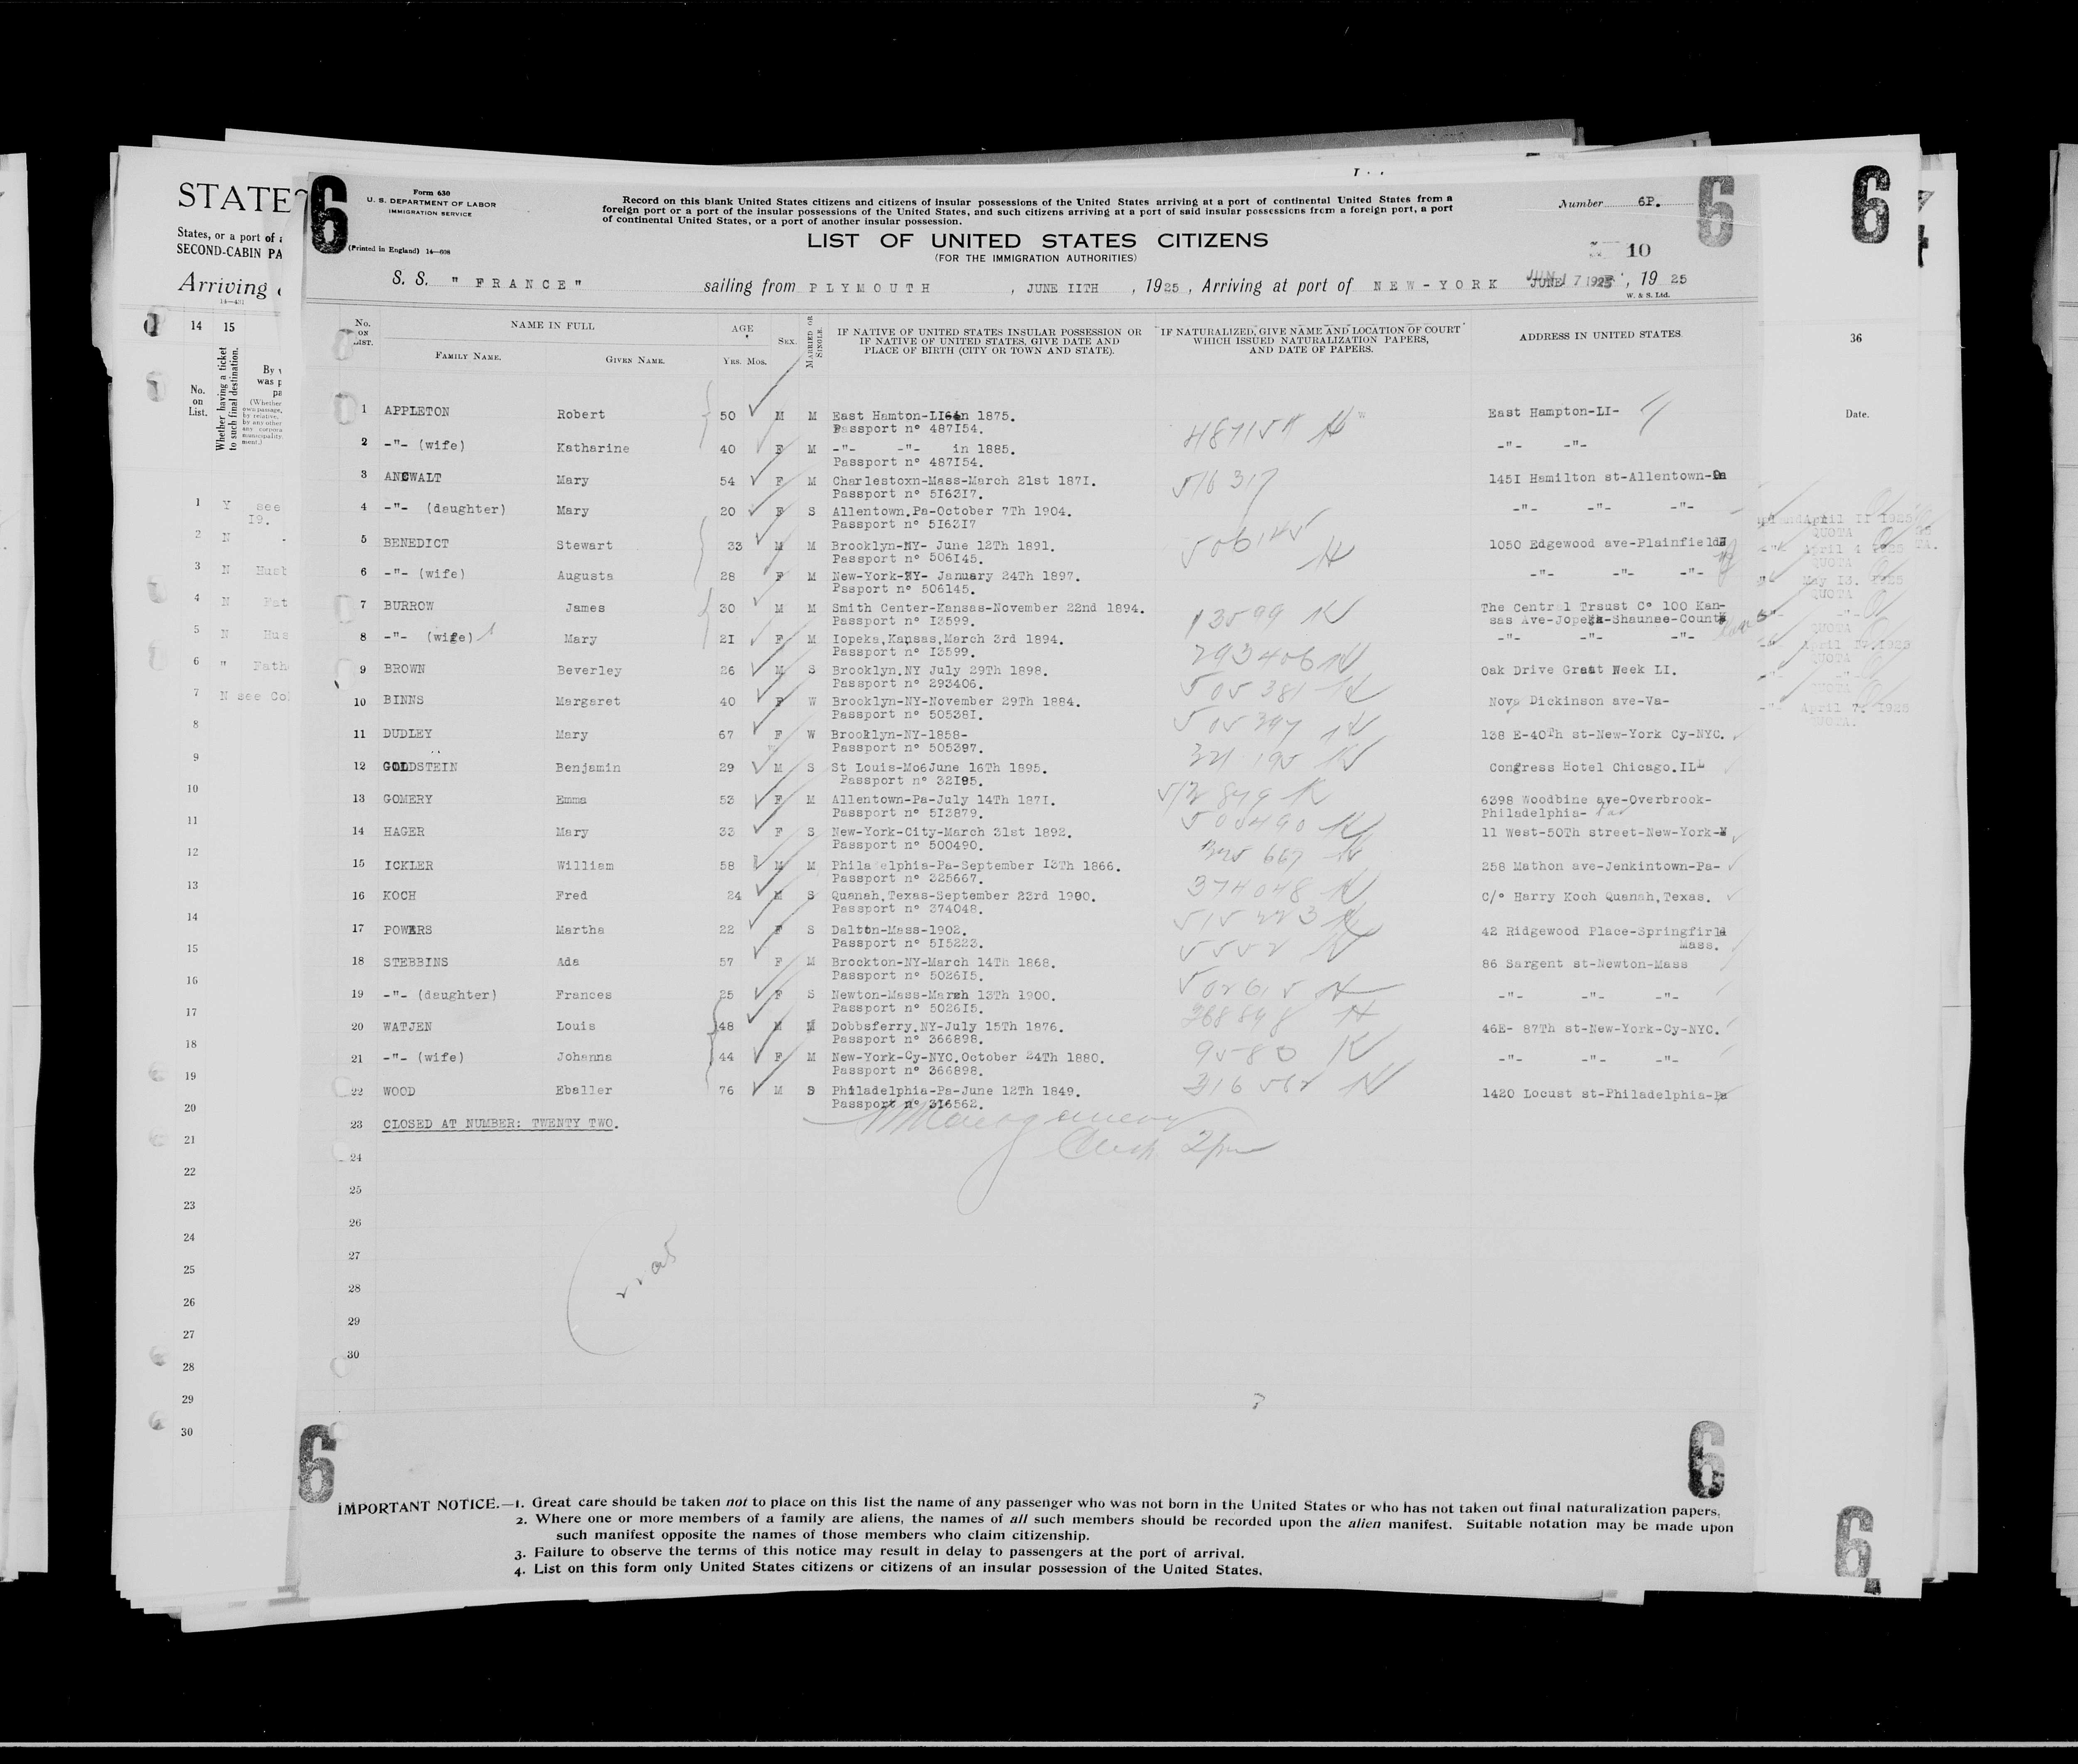 STATES
States, or a port of
SECOND-CABIN PA
Arriving
14—431
14 15
Whether having a ticket to such final destination.
No. on List.
By
was p
pa
(Whether
own passage,
by relative,
by any other
any corpora
municipality,
ment.)
1 Y see
19.
2 N
3 N Husb
4 N Fat
5 N Hus
6 " Fath
7 N see Col
8
9
10
11
12
13
14
15
16
17
18
19
20
21
22
23
24
25
26
27
28
29
30
6
Form 630
U. S. DEPARTMENT OF LABOR
IMMIGRATION SERVICE
(Printed in England) 14—608
Record on this blank United States citizens and citizens of insular possessions of the United States arriving at a port of continental United States from a
foreign port or a port of the insular possessions of the United States, and such citizens arriving at a port of said insular possessions from a foreign port, a port
of continental United States, or a port of another insular possession.
Number 6P.
6
LIST OF UNITED STATES CITIZENS
(FOR THE IMMIGRATION AUTHORITIES)
10
S. S. " FRANCE" sailing from PLYMOUTH , JUNE IITH , 1925 , Arriving at port of NEW-YORK JUNE 17 1925 , 19 25
W. & S. Ltd.
No. ON LIST.
NAME IN FULL
FAMILY NAME. GIVEN NAME.
AGE
YRS. MOS.
SEX.
MARRIED OR SINGLE.
IF NATIVE OF UNITED STATES INSULAR POSSESSION OR
IF NATIVE OF UNITED STATES, GIVE DATE AND
PLACE OF BIRTH (CITY OR TOWN AND STATE).
IF NATURALIZED, GIVE NAME AND LOCATION OF COURT
WHICH ISSUED NATURALIZATION PAPERS,
AND DATE OF PAPERS.
ADDRESS IN UNITED STATES.
1 APPLETON Robert 50 M M East Hamton-LI in 1875. East Hampton-LI-
Passport n° 487I54.
2 -"- (wife) Katharine 40 F M -"- -"- in 1885. -"- -"-
Passport n° 487I54.
3 ANEWALT Mary 54 F M Charlestoxn-Mass-March 21st 187I. 516317 145I Hamilton st-Allentown-Pa
Passport n° 5I63I7.
4 -"- (daughter) Mary 20 F S Allentown.Pa-October 7Th 1904. -"- -"- -"-
Passport n° 5I63I7
5 BENEDICT Stewart 33 M M Brooklyn-NY- June 12Th 1891. 506145 1050 Edgewood ave-Plainfield
Passport n° 506I45.
6 -"- (wife) Augusta 28 F M New-York-NY- January 24Th 1897. -"- -"- -"-
Pssport n° 506145.
7 BURROW James 30 M M Smith Center-Kansas-November 22nd 1894. 13599 The Central Trsust C° 100 Kan-
Passport n° I3599. sas Ave-Jopeka-Shaunee-County
8 -"- (wife) Mary 2I F M Iopeka,Kansas,March 3rd 1894. -"- -"- -"-
Passport n° I3599.
9 BROWN Beverley 26 M S Brooklyn.NY July 29Th 1898. 293406 Oak Drive Great Week LI.
Passport n° 293406.
10 BINNS Margaret 40 F W Brooklyn-NY-November 29Th 1884. 505381 Nova Dickinson ave-Va-
Passport n° 50538I.
11 DUDLEY Mary 67 F W Brooklyn-NY-1858- 505397 138 E-40Th st-New-York Cy-NYC.
Passport n° 505397.
12 GOLDSTEIN Benjamin 29 M S St Louis-Mo6June 16Th 1895. 32195 Congress Hotel Chicago.ILL
Passport n° 32I95.
13 GOMERY Emma 53 F M Allentown-Pa-July 14Th 187I. 513879 6398 Woodbine ave-Overbrook-
Passport n° 5I3879. Philadelphia-
14 HAGER Mary 33 F S New-York-City-March 31st 1892. 500490 11 West-50Th street-New-York-N
Passport n° 500490.
15 ICKLER William 58 M M Philadelphia-Pa-September I3Th 1866. 325667 258 Mathon ave-Jenkintown-Pa-
Passport n° 325667.
16 KOCH Fred 24 M S Quanah,Texas-September 23rd 1900. 374048 C/° Harry Koch Quanah,Texas.
Passport n° 374048.
17 POWERS Martha 22 F S Dalton-Mass-1902. 515223 42 Ridgewood Place-Springfirld
Passport n° 5I5223. Mass.
18 STEBBINS Ada 57 F M Brockton-NY-March 14Th 1868. 86 Sargent st-Newton-Mass
Passport n° 5026I5.
19 -"- (daughter) Frances 25 F S Newton-Mass-March 13Th 1900. 502615 -"- -"- -"-
Passport n° 5026I5.
20 WATJEN Louis 48 M M Dobbsferry.NY-July 15Th 1876. 46E- 87Th st-New-York-Cy-NYC.
Passport n° 366898.
21 -"- (wife) Johanna 44 F M New-York-Cy-NYC.October 24Th 1880. 9580 -"- -"- -"-
Passport n° 366898.
22 WOOD Eballer 76 M S Philadelphia-Pa-June 12Th 1849. 316562 1420 Locust st-Philadelphia-Pa
Passport n° 3I6562.
23 CLOSED AT NUMBER: TWENTY TWO.
24
25
26
27
28
29
30
6
6
IMPORTANT NOTICE.—1. Great care should be taken not to place on this list the name of any passenger who was not born in the United States or who has not taken out final naturalization papers.
2. Where one or more members of a family are aliens, the names of all such members should be recorded upon the alien manifest. Suitable notation may be made upon
such manifest opposite the names of those members who claim citizenship.
3. Failure to observe the terms of this notice may result in delay to passengers at the port of arrival.
4. List on this form only United States citizens or citizens of an insular possession of the United States.
6
36
Date.
April II 1925
QUOTA
April 4 1925
QUOTA
May 13. 1925
QUOTA
QUOTA
QUOTA
QUOTA
April 7. 1925
QUOTA.
6